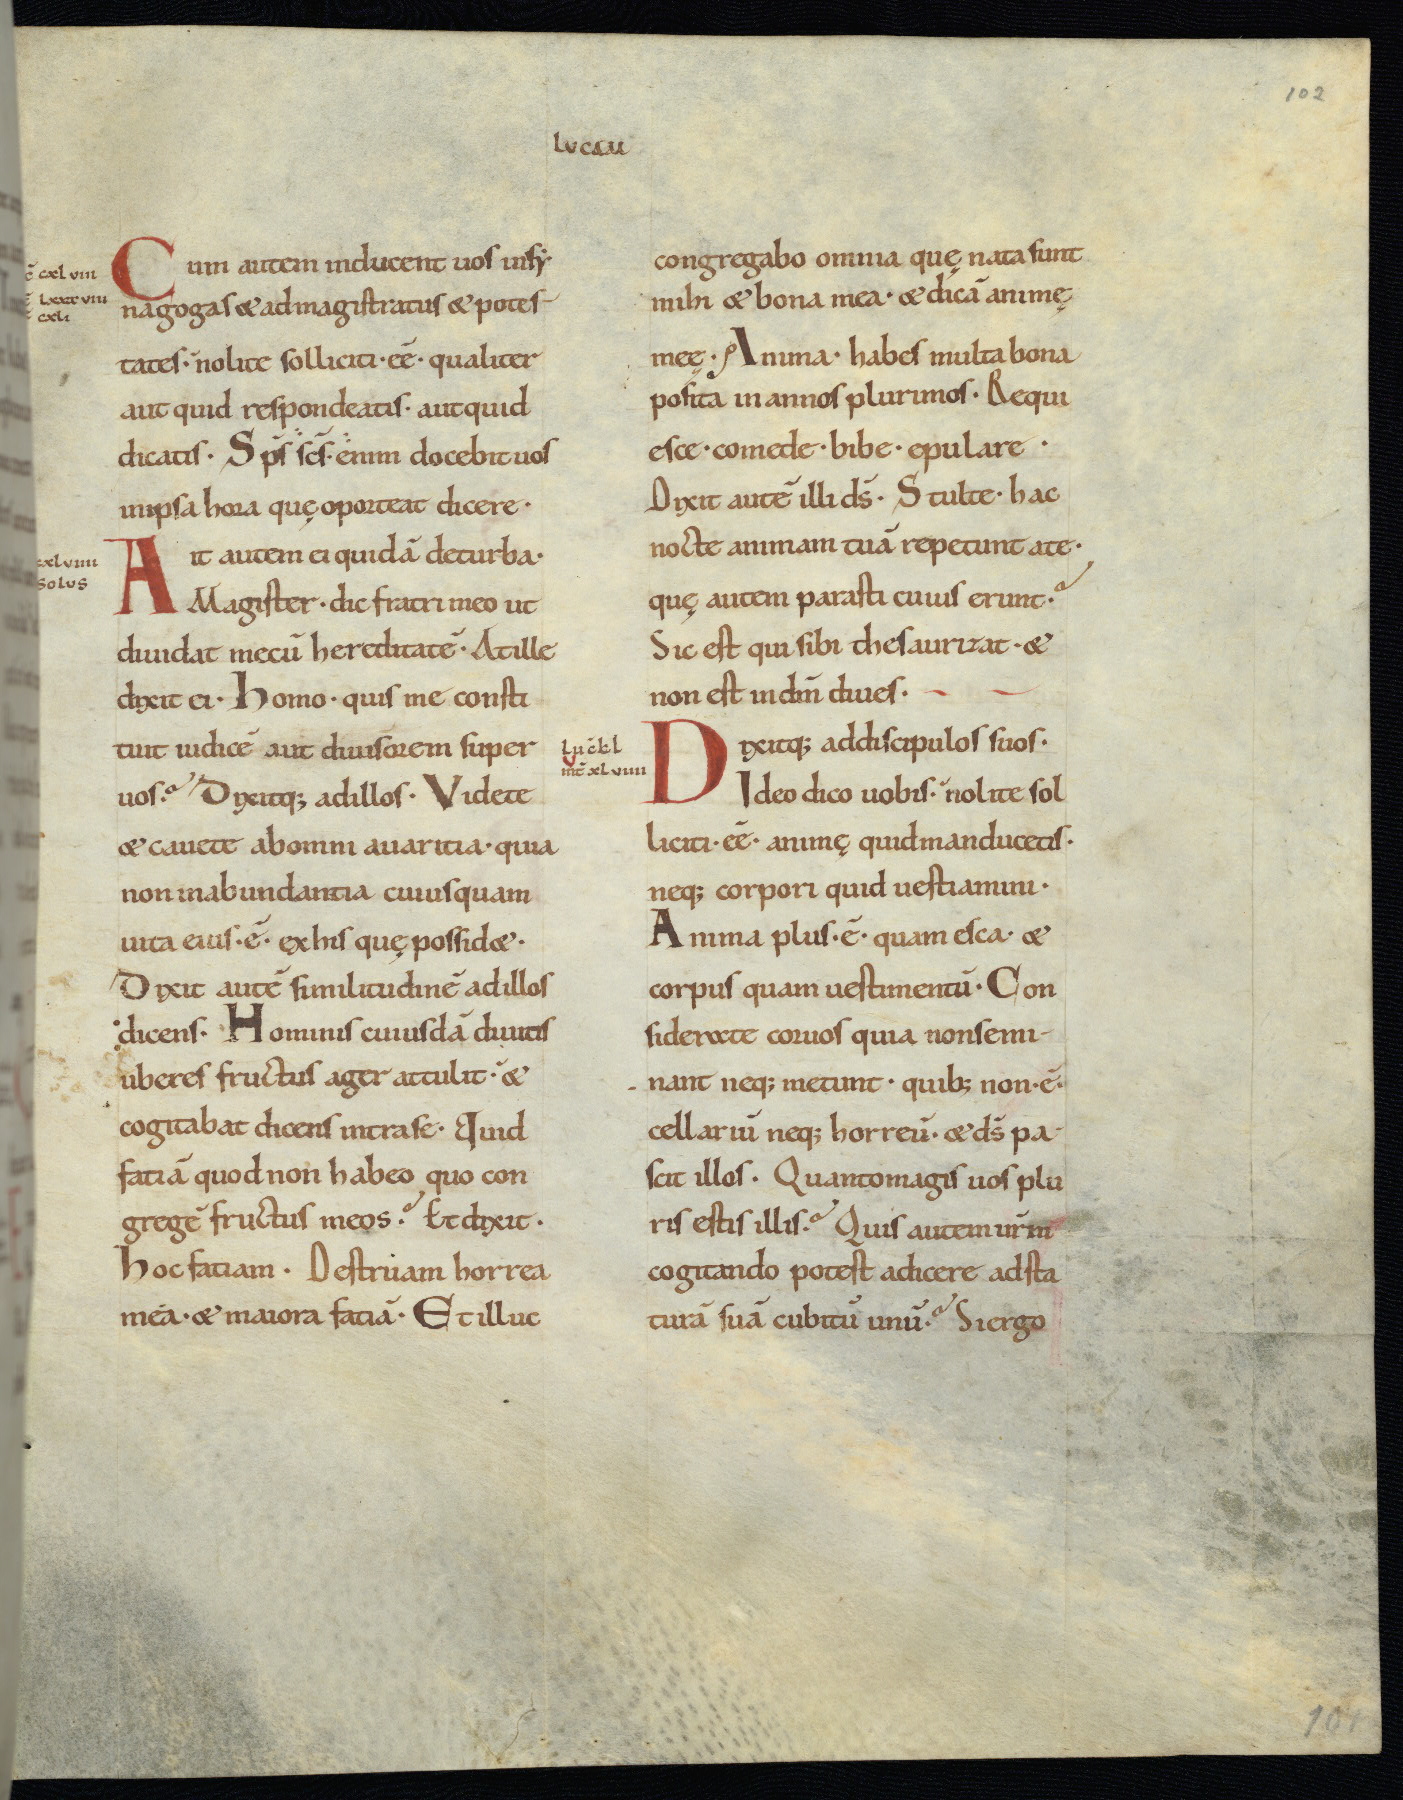 102
lucam
cxlviii
lxxxviii
cxli
Cum autem inducent uos insy
nagogas & ad magistratus & potes
tates· nolite solliciti·eē· qualiter
aut quid respondeatis· aut quid
dicatis· Sp̄s sc̄s enim docebit uos
in ipsa hora quę oporteat dicere·
cxlviiii
solus
Ait autem ei quidā de turba·
Magister· dic fratri meo ut
diuidat mecū hereditatē· At ille
dixit ei· Homo· quis me consti
tuit iudicē aut diuisorem super
uos? Dixitq; ad illos· Videte
& cauete ab omni auaritia· quia
non in abundantia cuiusquam
uita eius·ē· ex his quę possid&·
Dixit autē similitudinē ad illos
dicens· Hominis cuiusdā diuitis
uberes fructus ager attulit· &
cogitabat dicens intra se· Quid
fatiā quod non habeo quo con
gregē fructus meos? Et dixit·
Hoc fatiam· Destruam horrea
mea· & maiora fatiā· Et illuc
congregabo omnia quę nata sunt
mihi & bona mea· & dicā animę
meę· Anima· habes multa bona
posita in annos plurimos· Requi
esce· comede· bibe· epulare·
Dixit autē illi d̄s· Stulte· hac
nocte animam tuā repetunt a te·
quę autem parasti cuius erunt?
Sic est qui sibi thesaurizat· &
non est in dm̄ diues·
lu c̄l
mt̄ xlviiii
Dixitq; ad discipulos suos·
Ideo dico uobis· nolite sol
liciti·eē· animę quid manducetis·
neq; corpori quid uestiamini·
Anima plus·ē· quam esca· &
corpus quam uestimentū· Con
siderate coruos quia non semi-
nant neq; metunt· quib; non·ē·
cellariū neq; horreū· & d̄s pa-
scit illos· Quanto magis uos plu
ris estis illis? Quis autem ur̄m
cogitando potest adicere ad sta
turā suā cubitū unū? Si ergo
101